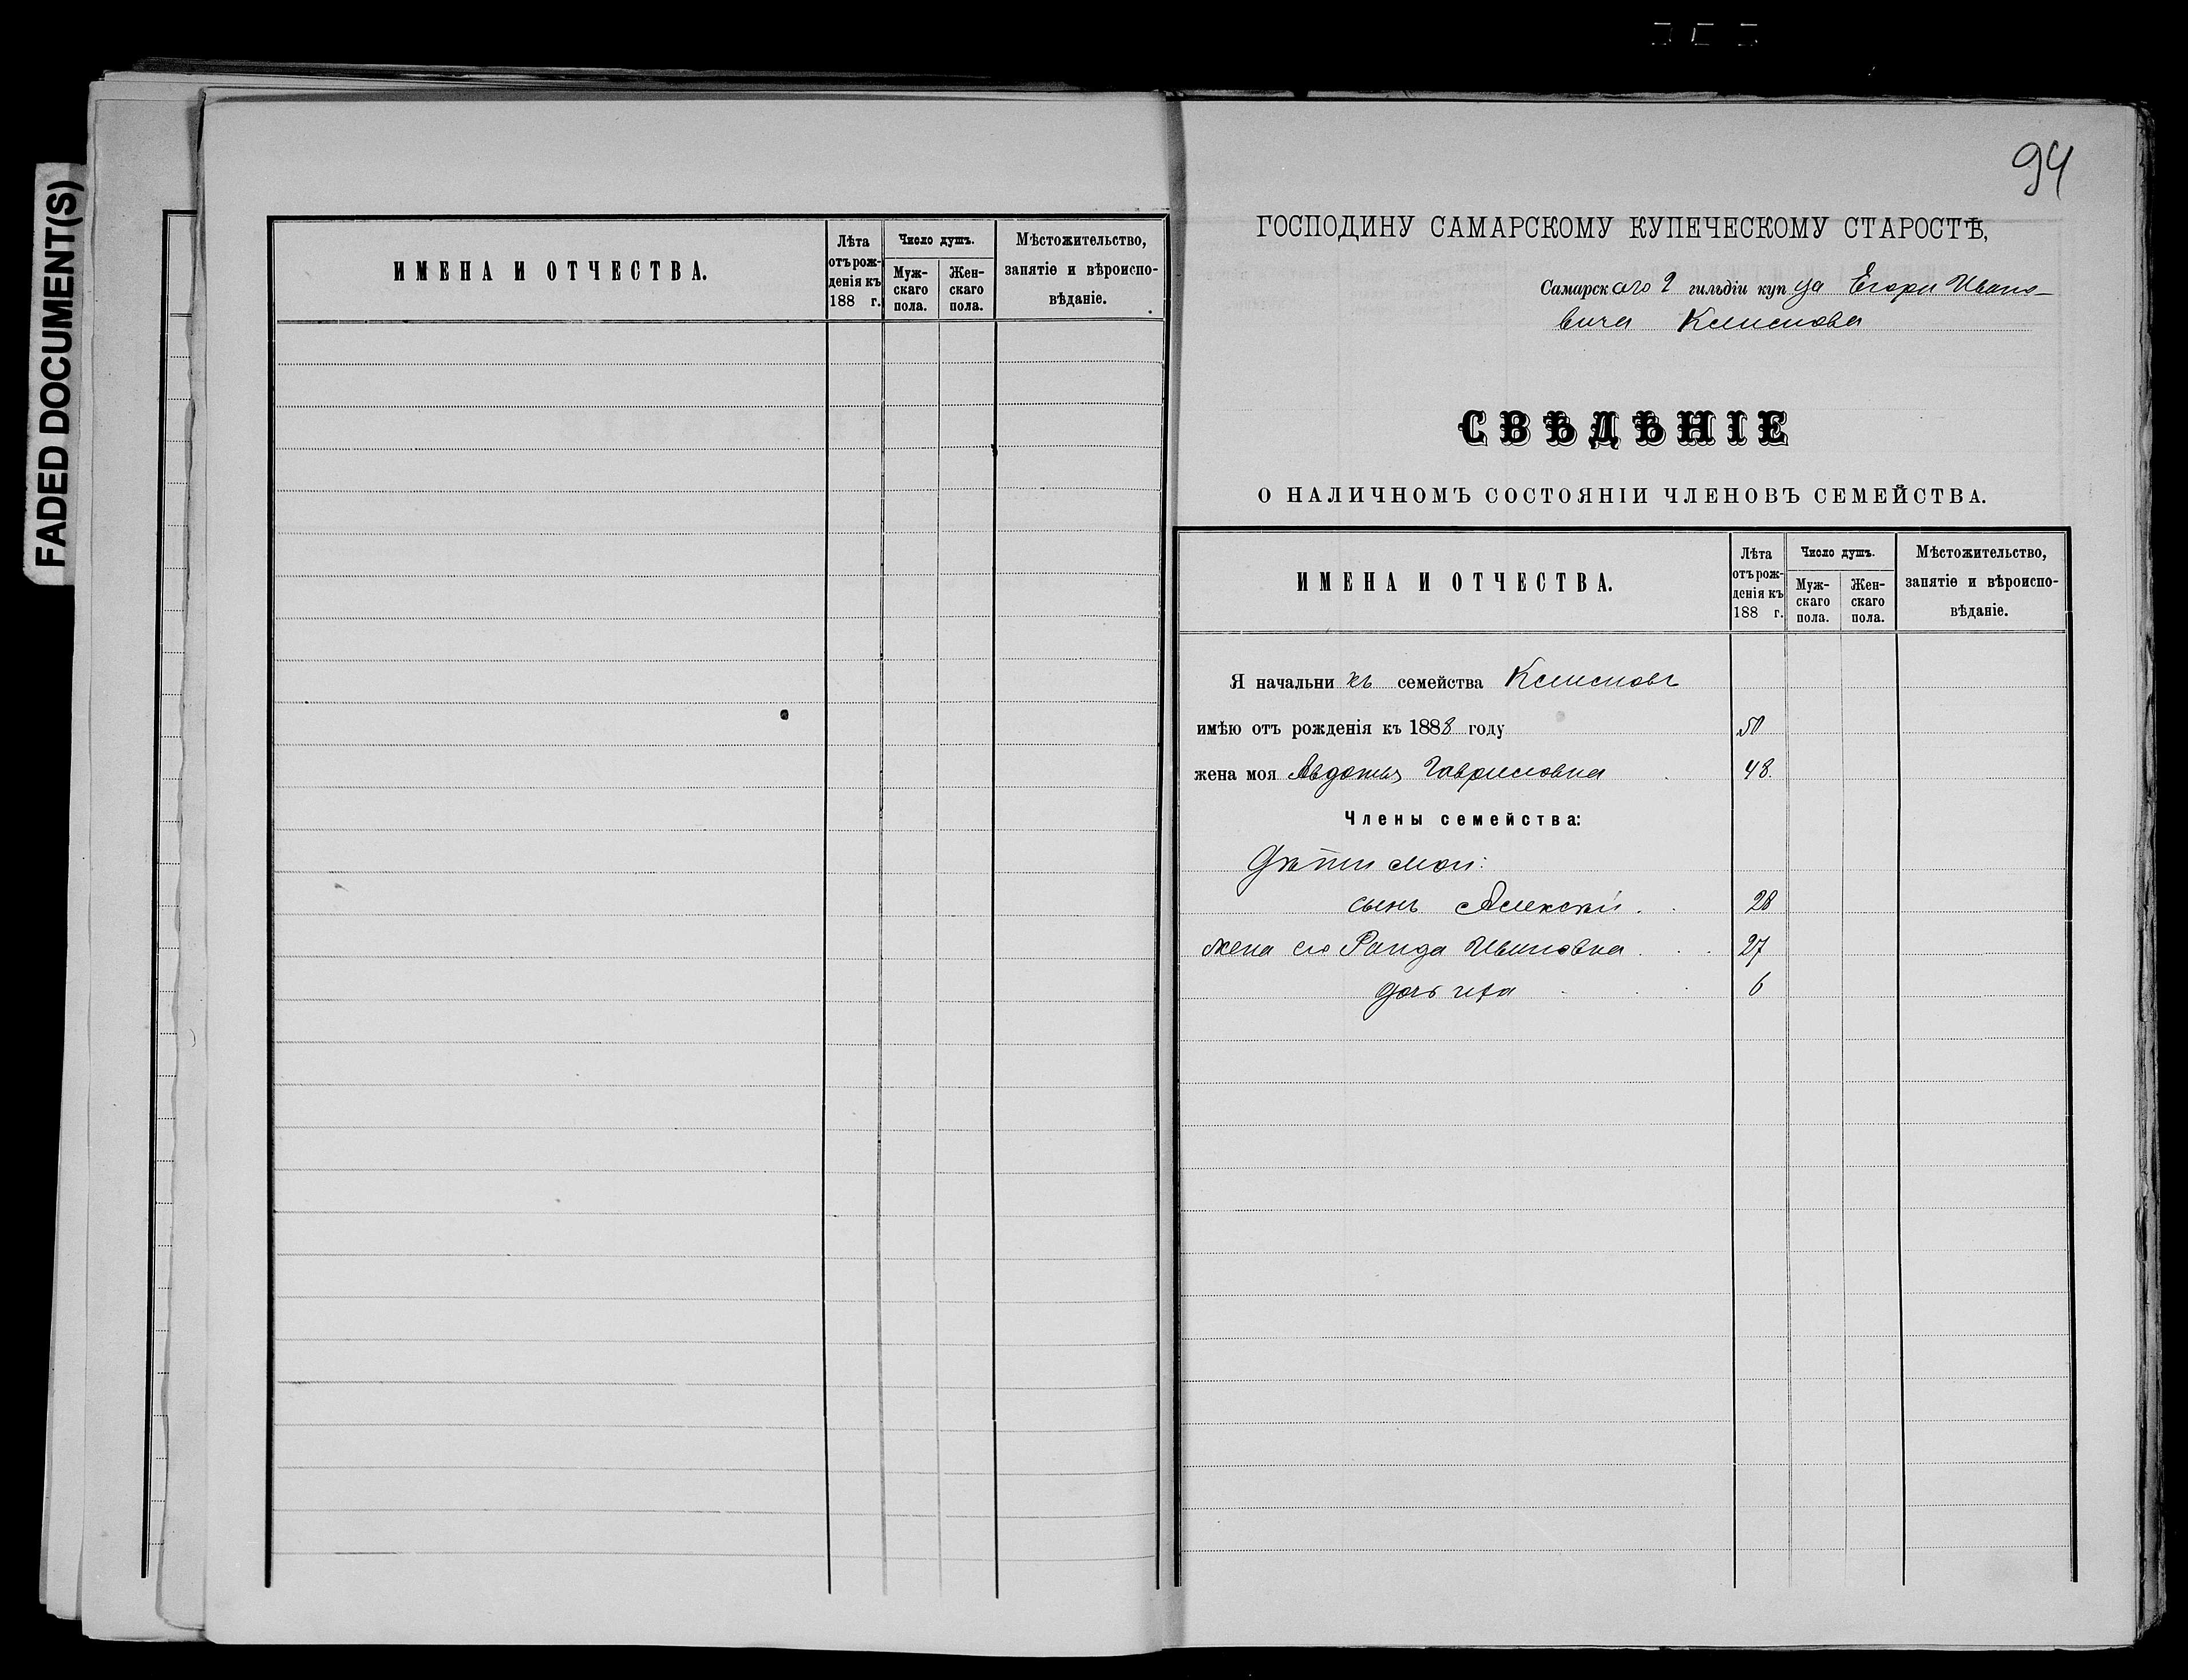 FADED DOCUMENT(S)
ИМЕНА И ОТЧЕСТВА.
Лѣта отъ рожденія къ 188 г.
Число душъ.
Мужскаго пола.
Женскаго пола.
Мѣстожительство, занятіе и вѣроисповѣданіе.
94
ГОСПОДИНУ САМАРСКОМУ КУПЕЧЕСКОМУ СТАРОСТѢ,
Самарскаго 2 гильдіи купца Егора Ивано-
вича
СВѢДѢНІЕ
О НАЛИЧНОМЪ СОСТОЯНІИ ЧЛЕНОВЪ СЕМЕЙСТВА.
ИМЕНА И ОТЧЕСТВА.
Лѣта отъ рожденія къ 188 г.
Число душъ.
Мужскаго пола.
Женскаго пола.
Мѣстожительство, занятіе и вѣроисповѣданіе.
Я начальникъ семейства
имѣю отъ рожденія къ 1888 году 50
жена моя Авдотья Гавриловна 48.
Члены семейства:
Дѣти мои:
сынъ Алексѣй 28
жена его Ивановна 27
дочь ихъ 6